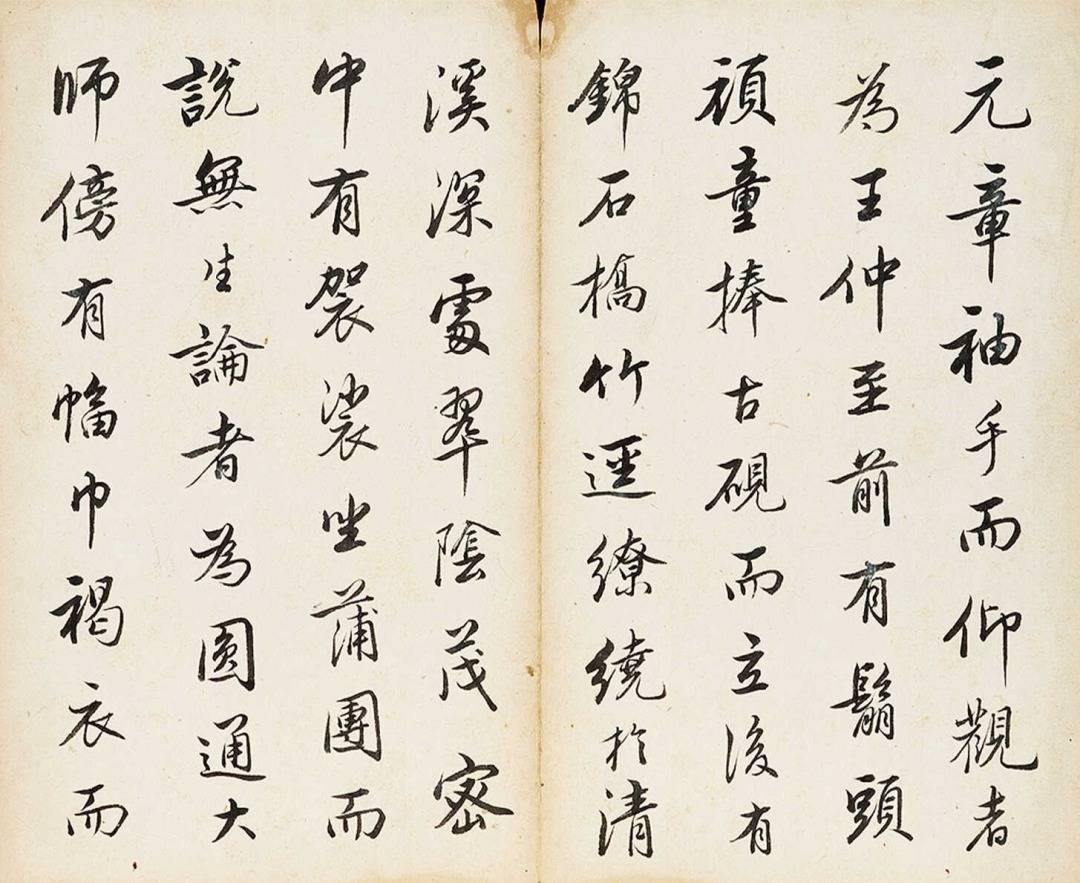 元章袖手而仰觀者
為王仲至前有鬅頭
頑童捧古硯而立後有
錦石橋竹逕繚繞於清
溪深處翠陰茂密
中有袈裟坐蒲團而
說無生論者為圓通大
師傍有幅巾褐衣而